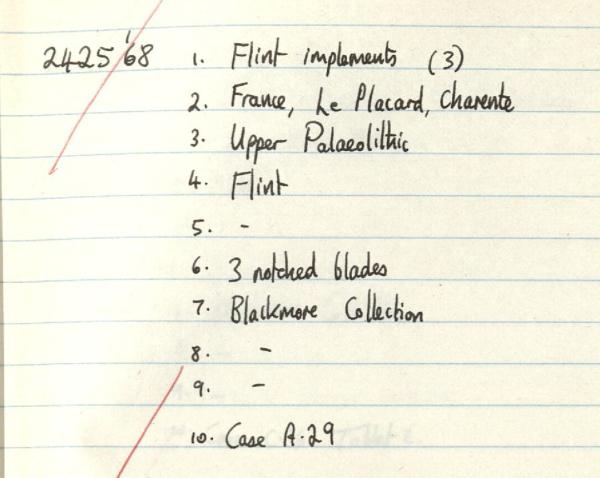 2425'68 1. Flint implements (3)
2. France, Le Placard, Charente
3. Upper Palaeolithic
4. Flint
5. -
6. 3 notched blades
7. Blackmore Collection
8. -
9. -
10. Case A.29